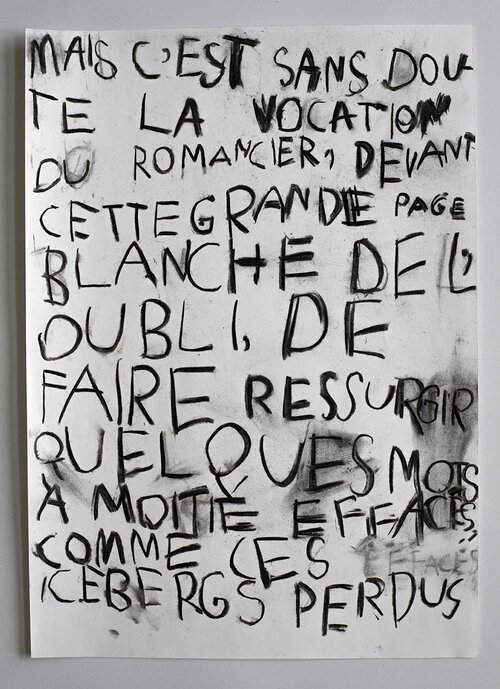 MAIS C'EST SANS DOU-
TE LA VOCATION
DU ROMANCIER, DEVANT
CETTE GRANDE PAGE
BLANCHE DE L'
OUBLI, DE
FAIRE RESSURGIR
QUELQUES MOTS
À MOITIÉ EFFACÉS,
COMME CES EFFACÉS
ICEBERGS PERDUS